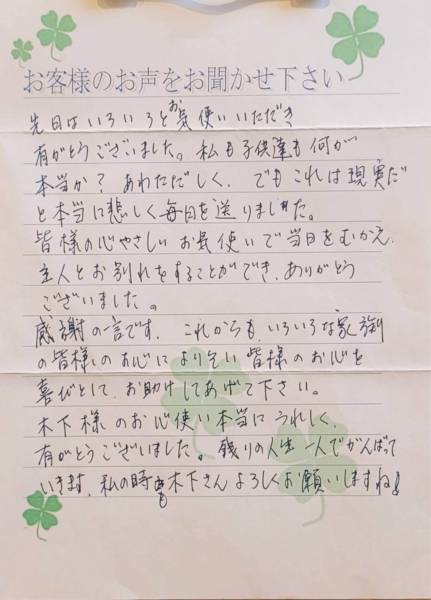 お客様のお声をお聞かせ下さい
先日はいろいろとお気使いいただき
有がとうございました。私も子供達も何が
本当か？あわただしく、でもこれは現実だ
と本当に悲しく毎日を送りました。
皆様の心やさしいお気使いで当日をむかえ、
主人とお別れをすることができ、ありがとう
ございました。
感謝の一言です。これからも、いろいろな家族
の皆様のお心により添い皆様のお心を
喜びとして、お助けしてあげて下さい。
木下様のお心使い本当にうれしく、
有がとうございました。残りの人生一人でがんばって
いきます、私の時も木下さんよろしくお願いしますね！